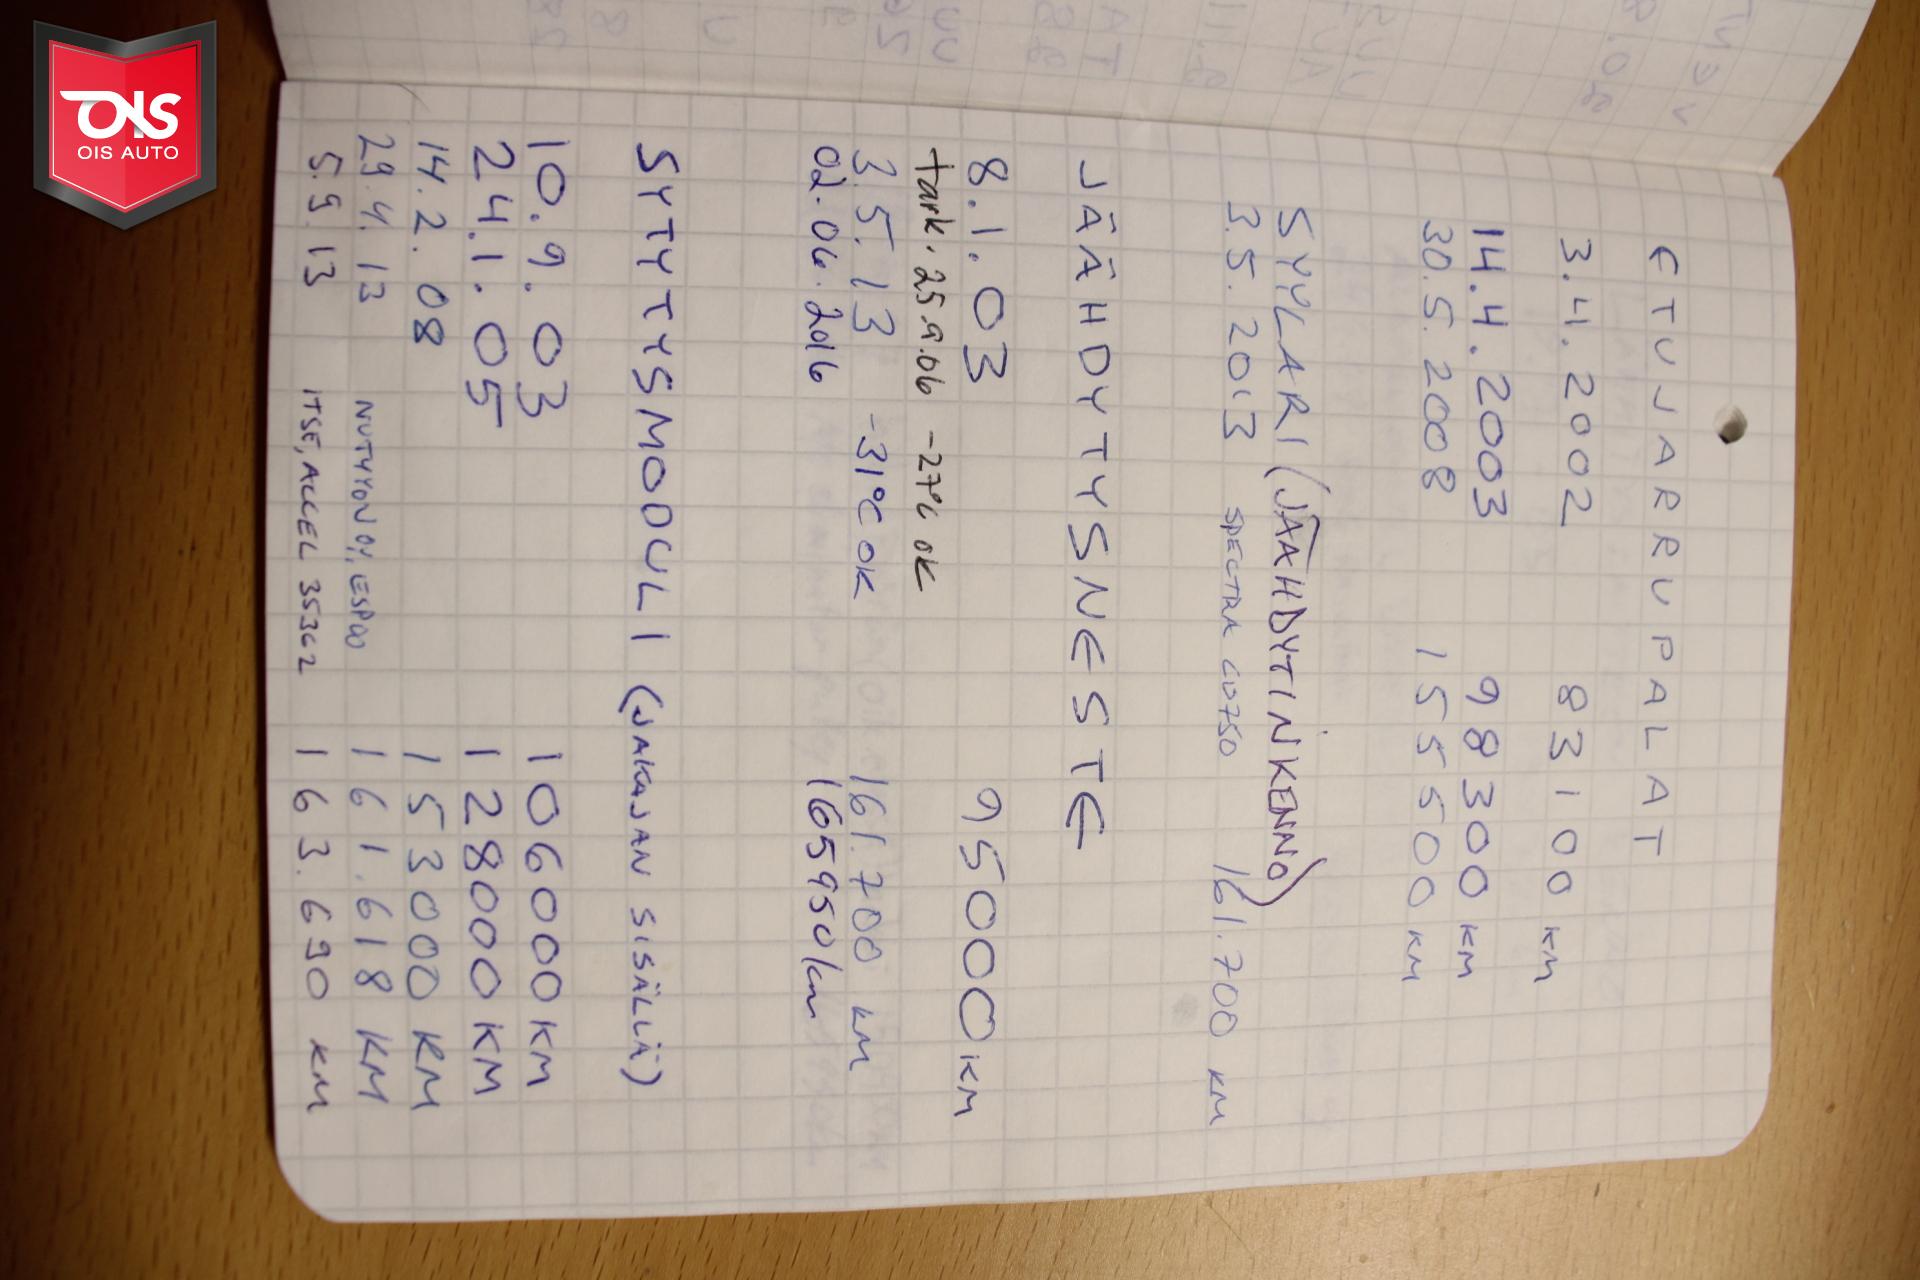 OIS
OIS AUTO
ETUJARRUPALAT
3.4.2002 83100 KM
14.4.2003 98300 KM
30.5.2008 155500 KM
SYYLARI (JÄÄHDYTINKENNO)
3.5.2013 SPECTRA CU750 161.700 KM
JÄÄHDYTYSNESTE
8.1.03 95000 KM
tark. 25.9.06 -27°C OK
3.5.13 -31°C OK 161.700 KM
02.06.2016 165950 km
SYTYTYSMODULI (JAKAJAN SISÄLLÄ)
10.9.03 106000 KM
24.1.05 128000 KM
14.2.08 153000 KM
29.4.13 NUTYYON OY, ESPOO 161.618 KM
5.9.13 ITSE, ACCEL 35362 163.690 KM